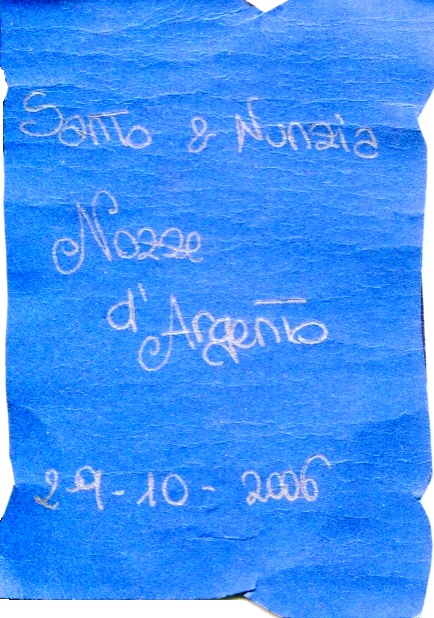 Santo & Nunzia
Nozze
d'Argento
29-10-2006